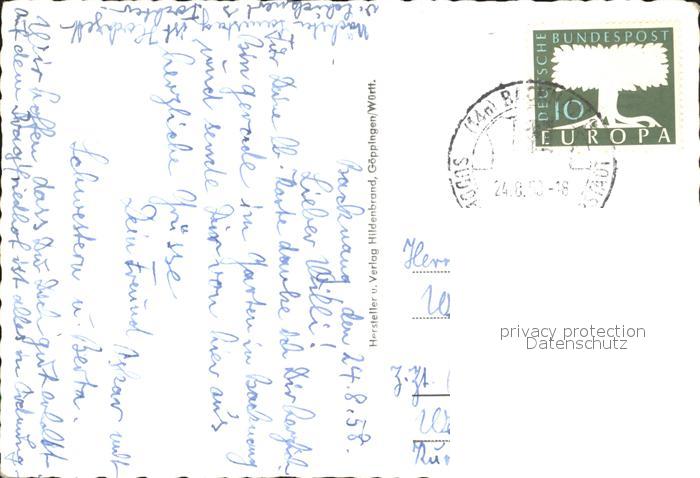 Backnang den 24.8.58.
Lieber Willi!
Für Deine lb. Karte danke ich Dir herzlich.
Bin gerade im Garten in Backnang
und sende Dir von hier aus
herzliche Grüsse
Dein Freund mit
Schwestern u. Berta.
Wir hoffen, dass Du Dich gut erholst
Auf dem Bergfriedhof ist alles in Ordnung.
Nächsten Sonntag
ist
Hochzeit
Hersteller u. Verlag Hildenbrand, Göppingen/Württ.
DEUTSCHE BUNDESPOST
10
EUROPA
(14a)
24.8.
-18
Herr
W
Zt.
privacy protection
Datenschutz